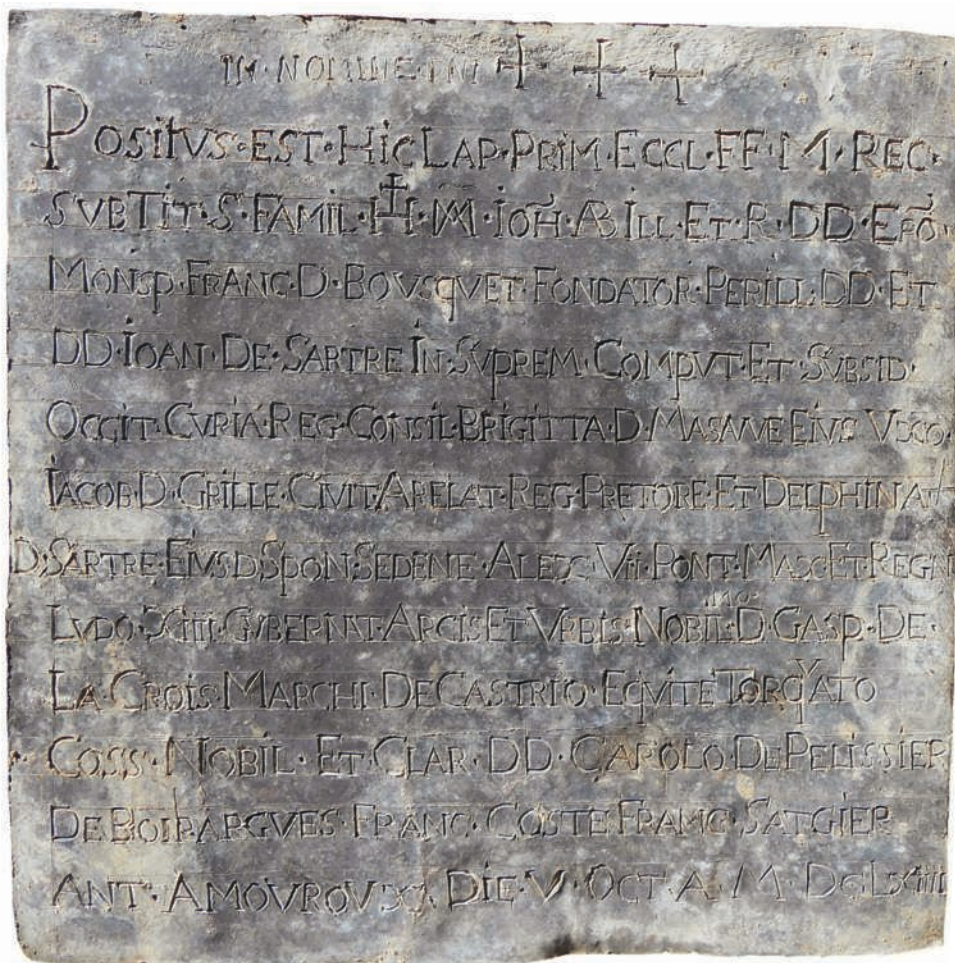 IN·NOMINE·DNI + + +
POSITVS·EST·HIC LAP·PRIM·ECCL·FF·M·REC·
SVB TIT·S·FAMIL·IH·MA·IOH·AB ILL·ET·R·DD·EPO·
MONSP·FRANC·D·BOVSQVET·FONDATOR·PERILL·DD·ET
DD·IOAN·DE·SARTRE IN·SVPREM·COMPVT·ET·SVBSID·
OCCIT·CVRIA·REG·CONSIL·BRIGITTA·D·MASAVVE EIVS VXO·
IACOB·D·GRILLE·CIVIT·ARELAT·REG·PRETORE·ET·DELPHINA
D·SARTRE·EIVSD SPON·SEDENTE·ALEX·VII·PONT·MAX ET·REGN
LVDO·XIIII·GVBERNAT·ARCIS ET·VRBIS·NOBIL·MO·D·GASP·DE·
LA·CROIS·MARCHI·DE CASTRIO·EQVITE TORQVATO
COSS·NOBIL·ET·CLAR·DD·CAROLO·DE PELISSIER
DE BOIRARGVES·FRANC·COSTE FRANC·SATGIER
ANT·AMOVROVX·DIE·V·OCT·A·M·DCLXIIII